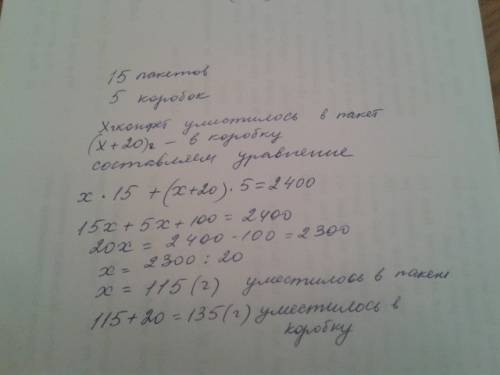 15 пакетов
5 коробок
Xг конфет уместилось в пакет
(x+20)г – в коробку
составляем уравнение
x · 15 + (x+20) · 5 = 2400
15x + 5x + 100 = 2400
20x = 2400 - 100 = 2300
x = 2300 : 20
x = 115 (г) уместилось в пакет
115 + 20 = 135 (г) уместилось в
коробку